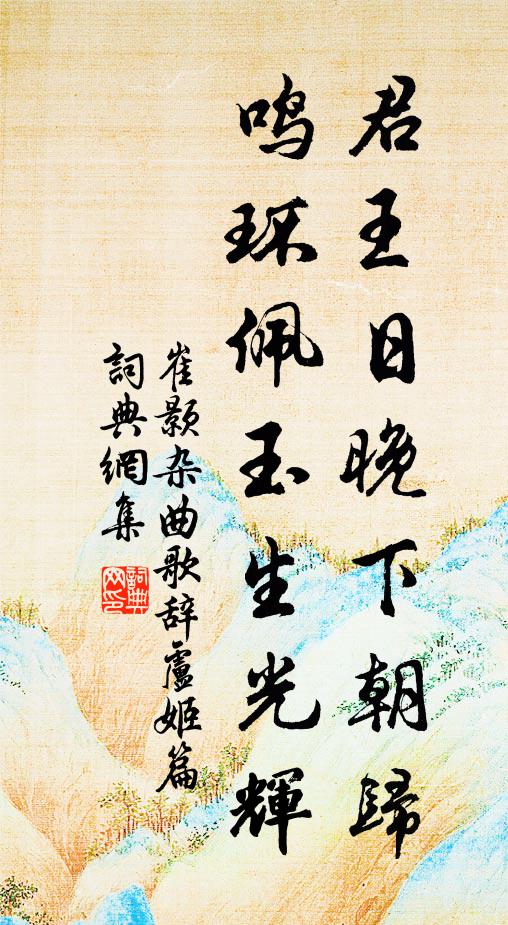 君王日晚下朝歸
鳴环佩玉生光輝
崔顥杂曲歌辞盧姬篇
詞典網集